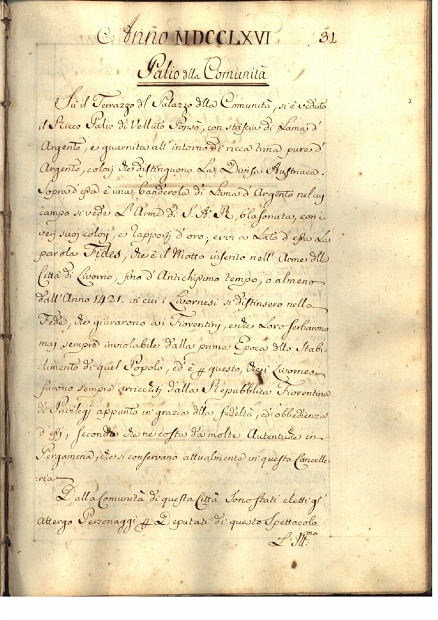 Anno MDCCLXVI 31
Palio dlla Comunità
Sù il Terrazzo dl Palazzo dlla Comunità, si è veduto
il Ricco Palio di Velluto Ponsò, con striscia di Lama d'
Argento, e guarnita all'intorno di ricca trina pure d'
Argento, colori che distinguono La Divisa Austriaca.
Sopra d'essa è una banderola di Lama d'Argento nel cui
campo si vede L'Arme di S. A. R. blasonata, con i
suoi colori, e rapporti d'oro; evvi a Lato d'essa La
parola Fides, che è il Motto inserito nell'Arme dlla
Città di Livorno, fino d'Antichissimo tempo, o almeno
dall'Anno 1421. in cui i Livornesi si distinsero nella
Fede, che giurarono ai Fiorentini, e che Loro serbarono
mai sempre inviolabile dalla prima Epoca dllo Stabi-
limento di quel Popolo, ed è questo, che i Livornesi
furono sempre arricchiti dalla Repubblica Fiorentina
di Privilegj appunto in grazia dlla fedeltà, ed obbedienza
d'essi, secondo che ne costa da molte Autentiche in
Pergamena, che si conservano attualmente in questa Cancelle-
ria
Dalla Comunità di questa Città sono stati eletti gl'
Attergo Personaggi Deputati di questo Spettacolo